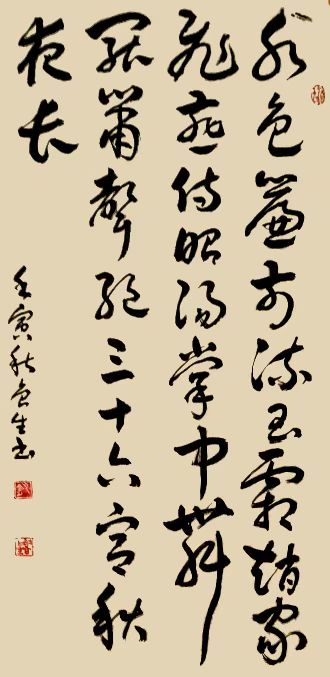 水色簾前流玉霜趙家
飛燕侍昭陽掌中舞
罷簫聲絕三十六宮秋
夜長
壬寅秋生书